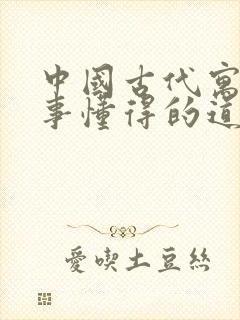 中國古代寓
事懂得的道
愛喫土豆絲